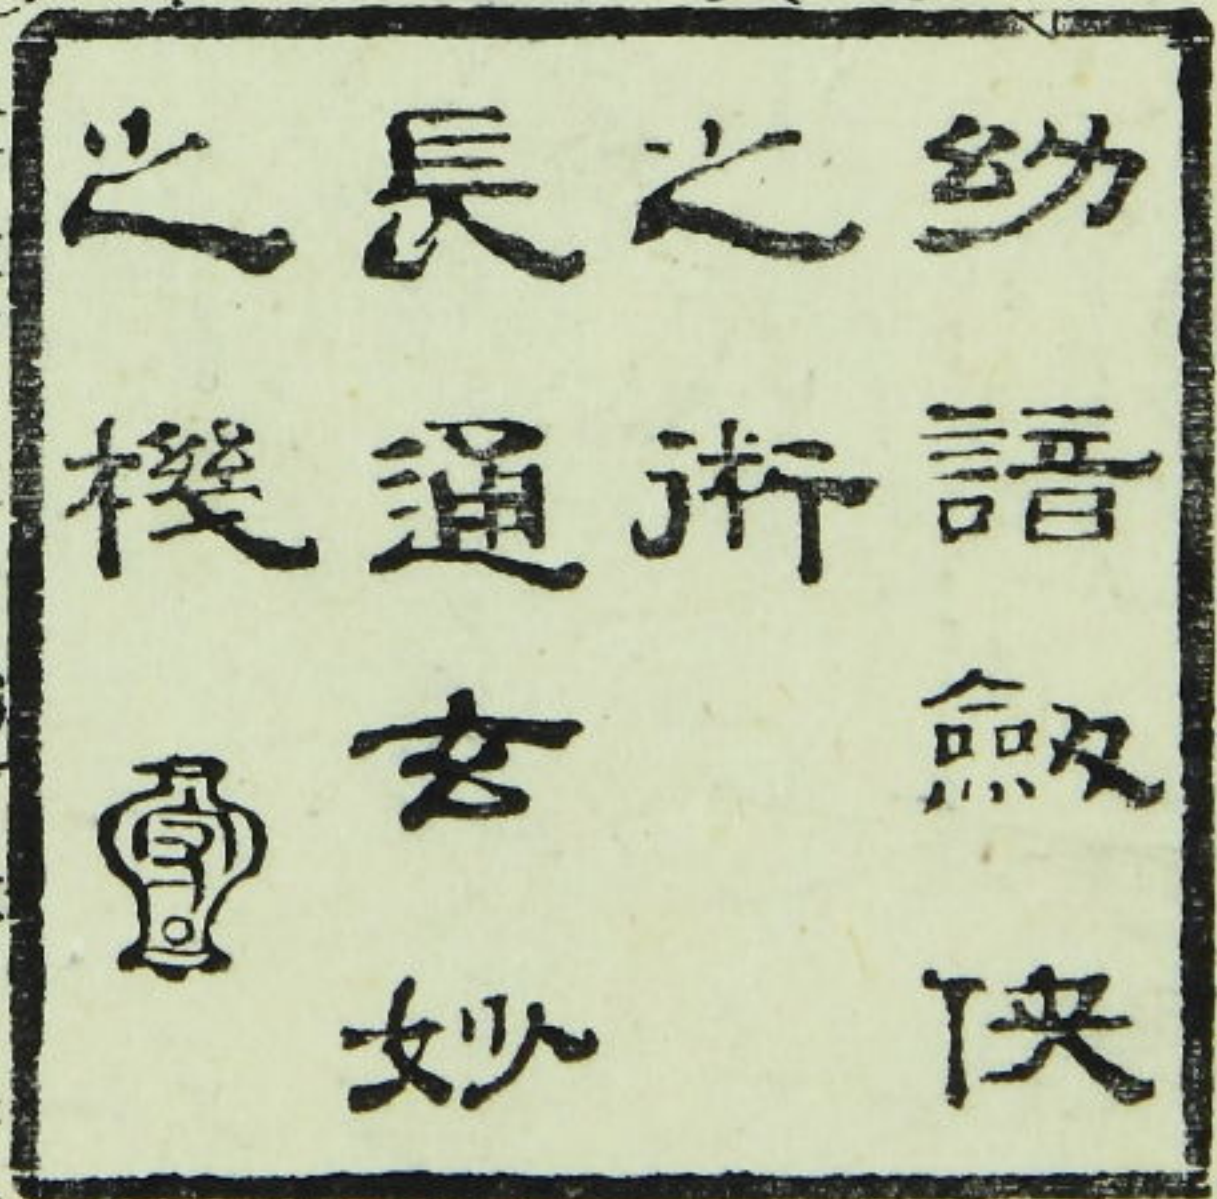 幼諳劍俠
之術
長通玄妙
之機